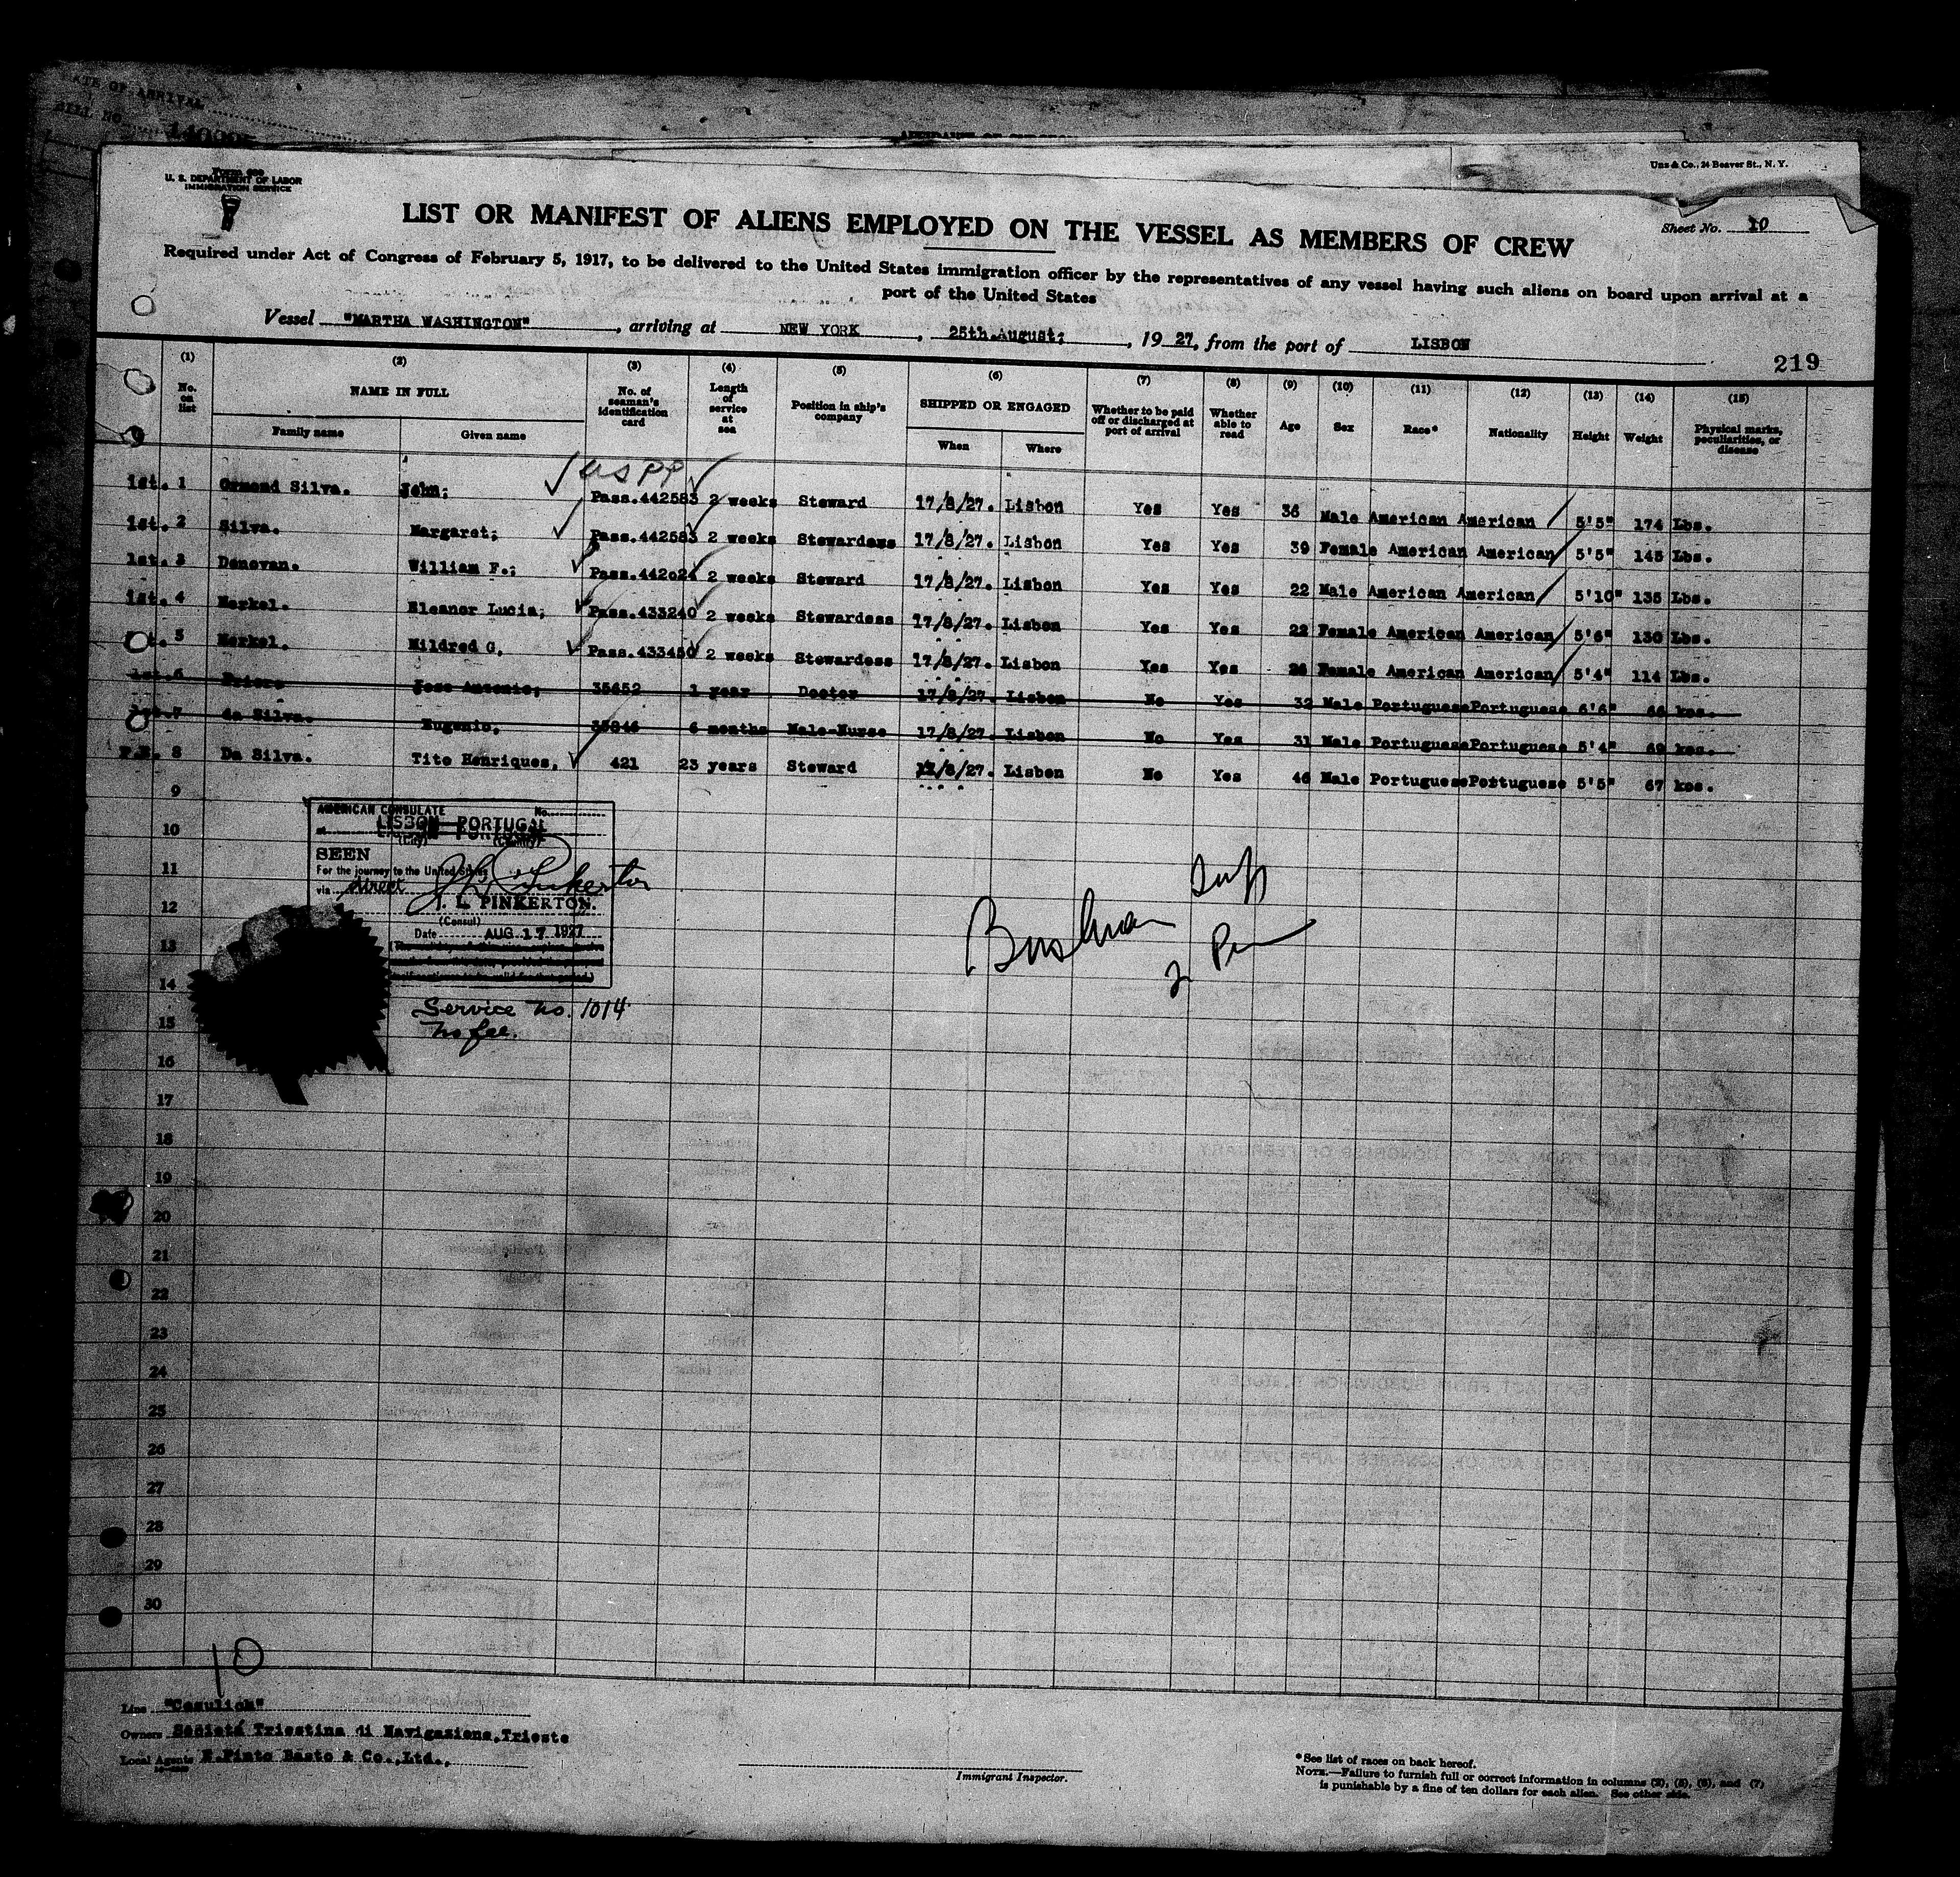 TE OF ARRIVAL
BILL NO.
Uns & Co., 24 Beaver St., N. Y.
U. S. DEPARTMENT OF LABOR
IMMIGRATION SERVICE
Sheet No. 10
LIST OR MANIFEST OF ALIENS EMPLOYED ON THE VESSEL AS MEMBERS OF CREW
Required under Act of Congress of February 5, 1917, to be delivered to the United States immigration officer by the representatives of any vessel having such aliens on board upon arrival at a
port of the United States
Vessel "MARTHA WASHINGTON", arriving at NEW YORK, 25th.August;, 1927, from the port of LISBON
219
(1) (2) (3) (4) (5) (6) (7) (8) (9) (10) (11) (12) (13) (14) (15)
No. on list NAME IN FULL No. of seaman's identification card Length of service at sea Position in ship's company SHIPPED OR ENGAGED Whether to be paid off or discharged at port of arrival Whether able to read Age Sex Race* Nationality Height Weight Physical marks, peculiarities, or disease
Family name Given name When Where
USPP
1st. 1 Ormond Silva. John; Pass.442583 2 weeks Steward 17/8/27. Lisbon Yes Yes 36 Male American American 5'5" 174 Lbs.
1st. 2 Silva. Margaret; Pass.442583 2 weeks Stewardess 17/8/27. Lisbon Yes Yes 39 Female American American 5'5" 145 Lbs.
1st. 3 Donovan. William F.; Pass.442024 2 weeks Steward 17/8/27. Lisbon Yes Yes 22 Male American American 5'10" 135 Lbs.
1st. 4 Merkel. Eleanor Lucia; Pass.433240 2 weeks Stewardess 17/8/27. Lisbon Yes Yes 22 Female American American 5'6" 130 Lbs.
5 Merkel. Mildred G. Pass.433450 2 weeks Stewardess 17/8/27. Lisbon Yes Yes 26 Female American American 5'4" 114 Lbs.
1st.6 Jose Antonio; 35652 1 year Doctor 17/8/27. Lisbon No Yes 32 Male Portuguese Portuguese 6'6" 66 kos.
7 da Silva. Eugenio, 6 months Male-Nurse 17/8/27. Lisbon No Yes 31 Male Portuguese Portuguese 5'4" 69 kos.
8 Da Silva. Tito Henriques, 421 23 years Steward /8/27. Lisbon No Yes 46 Male Portuguese Portuguese 5'5" 67 kos.
9
10
11
12
13
14
15
16
17
18
19
20
21
22
23
24
25
26
27
28
29
30
AMERICAN CONSULATE No.
at LISBON PORTUGAL
(City) (Country)
SEEN
For the journey to the United States
via direct J L Pinkerton
J. L. PINKERTON.
(Consul)
Date AUG 17 1927
Service No. 1014
No fee.
10
Line "Cosulich"
Owners Società Triestina di Navigazione,Trieste
Local Agents E.Pinto Basto & Co.,Ltd.,
Immigrant Inspector.
*See list of races on back hereof.
NOTE.—Failure to furnish full or correct information in columns (2), (5), (6), and (7)
is punishable by a fine of ten dollars for each alien. See other side.